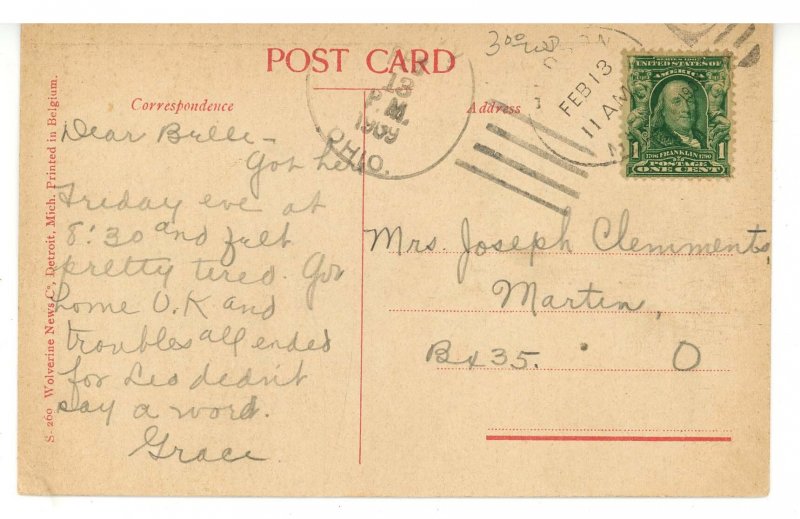 POST CARD
Correspondence
Address
S-260 Wolverine News Co, Detroit, Mich. Printed in Belgium.
13
P.M.
1909
OHIO.
FEB 13
11 AM
SERIES 1902
UNITED STATES OF
AMERICA
1 1
1706 FRANKLIN 1790
POSTAGE
ONE CENT
Dear Belle -
Got her
Friday eve at
8:30 and felt
pretty tired. Got
home O.K and
troubles all ended
for Leo dedn't
say a word.
Grace
Mrs. Joseph Clemments,
Martin,
Bx 35. O